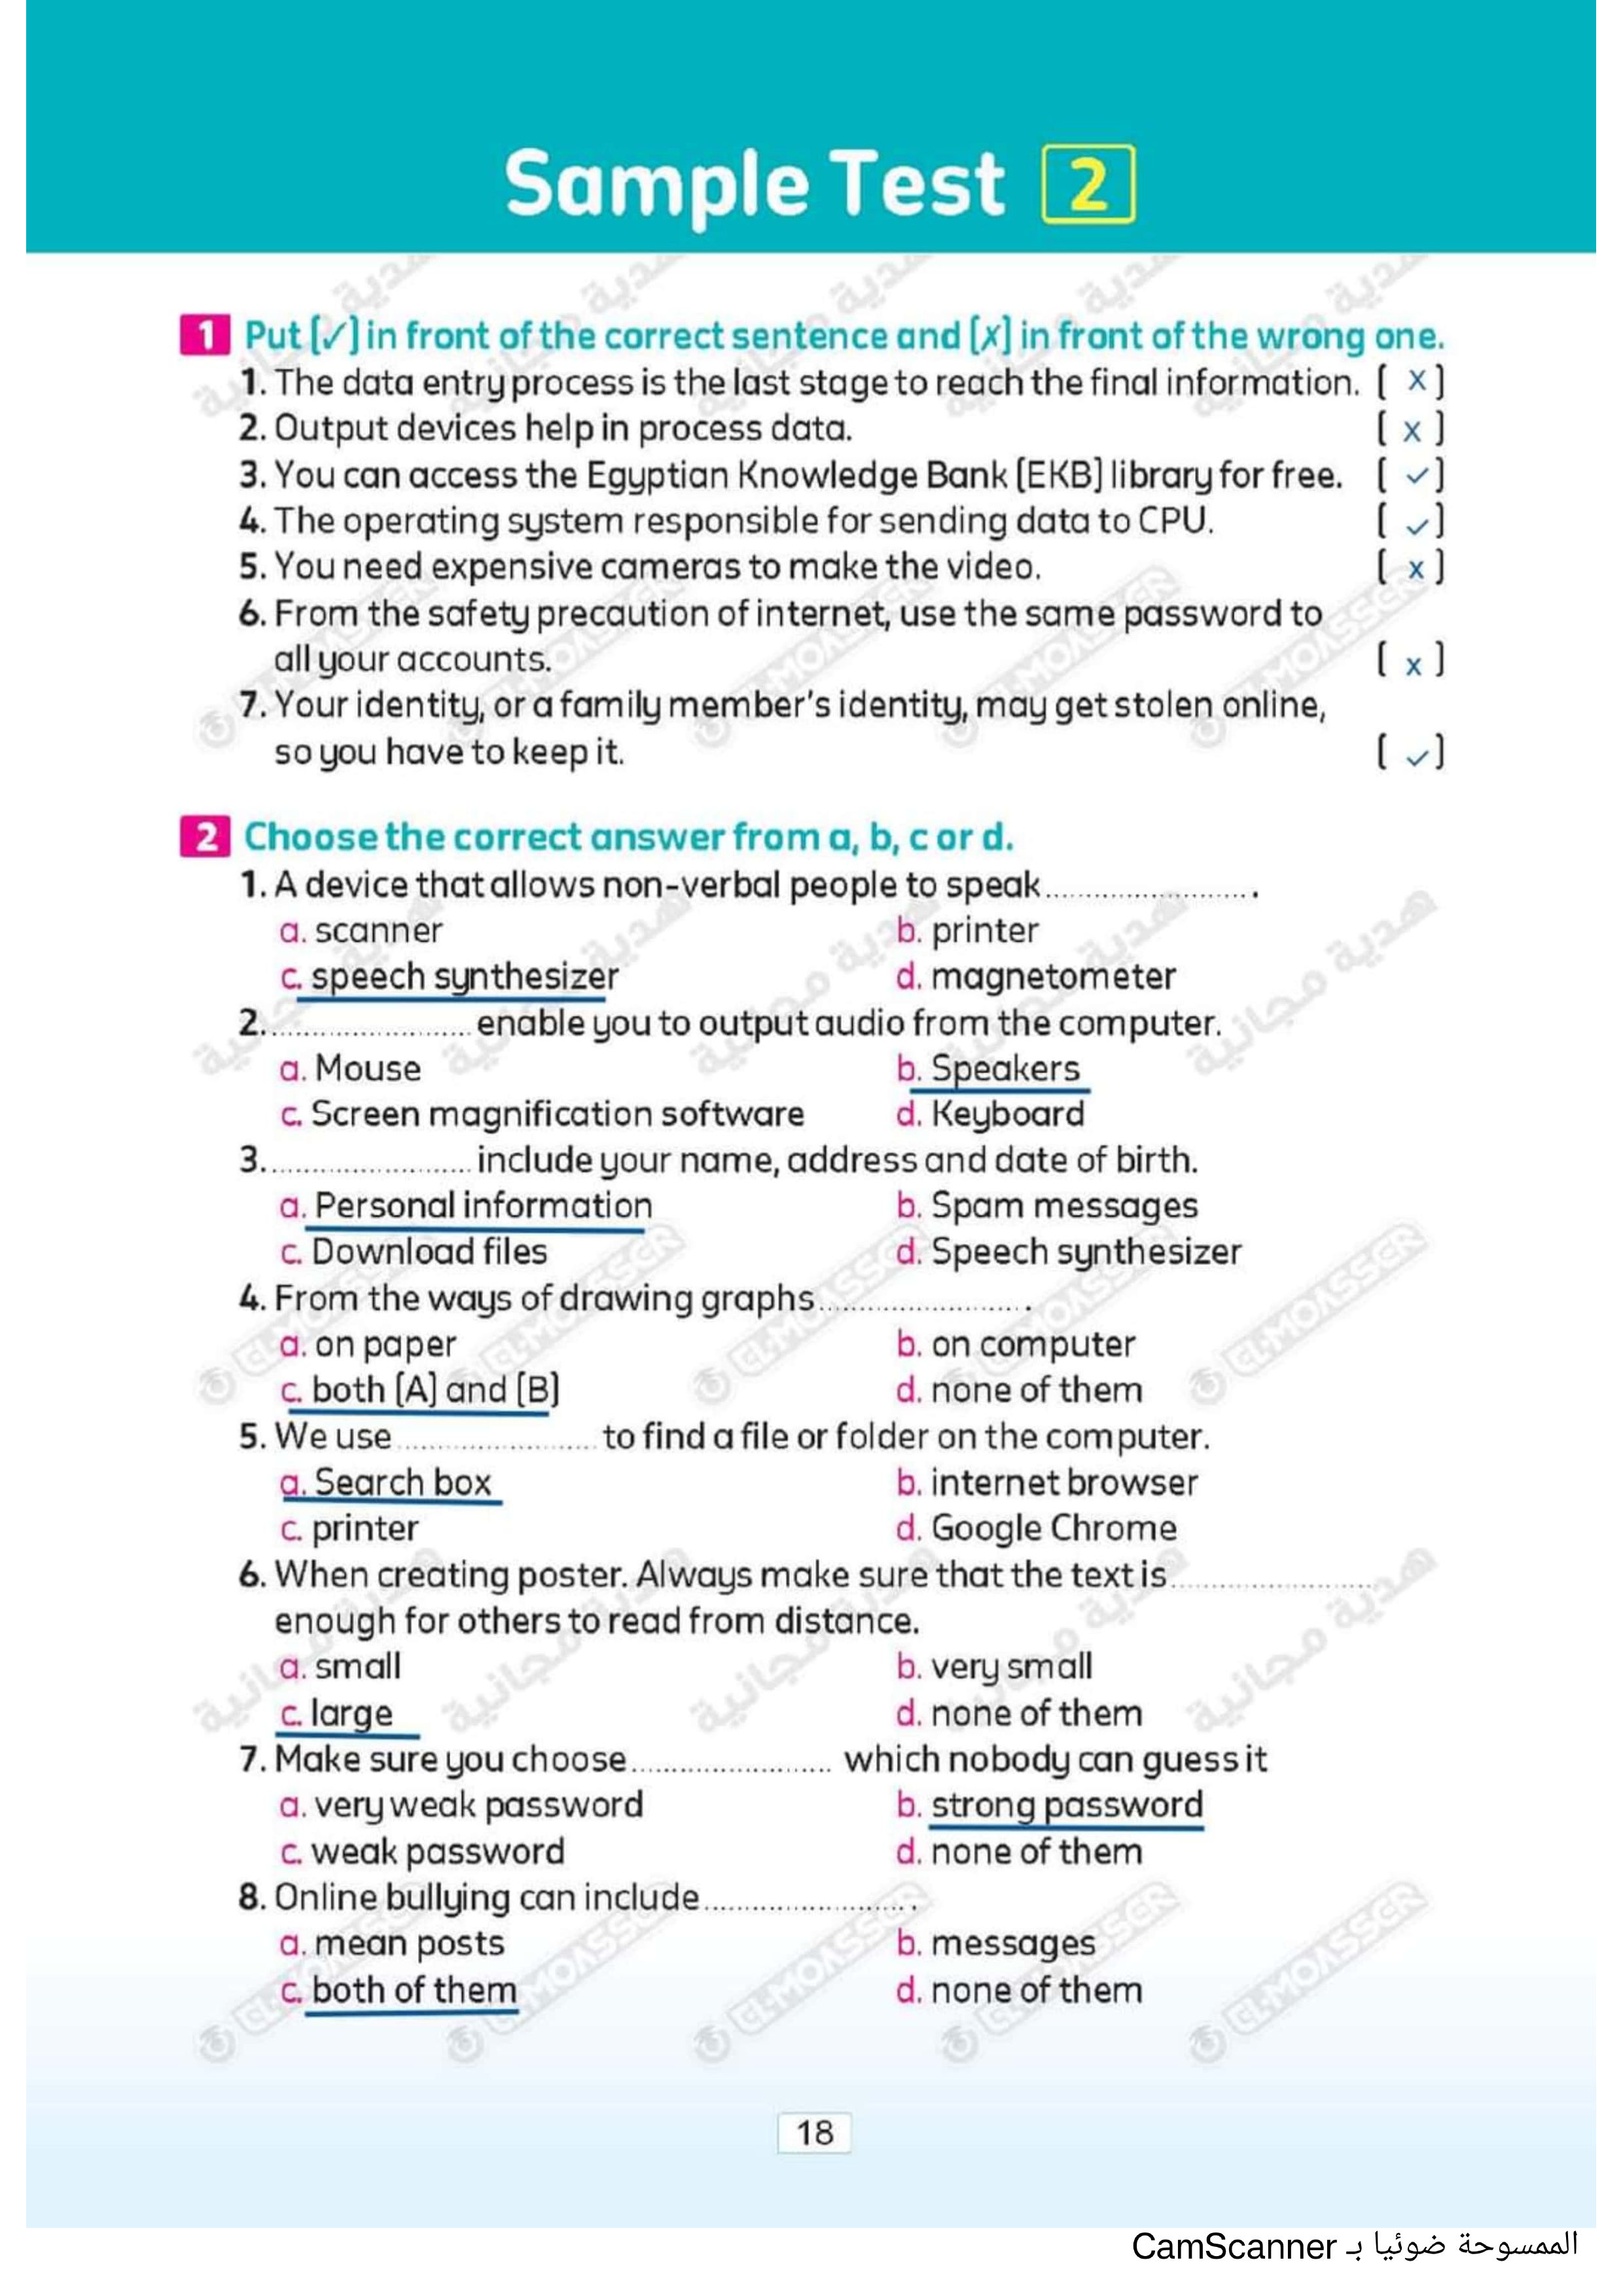 Sample Test 2
1 Put [✓] in front of the correct sentence and [x] in front of the wrong one.
1. The data entry process is the last stage to reach the final information. [ x ]
2. Output devices help in process data. [ x ]
3. You can access the Egyptian Knowledge Bank [EKB] library for free. [ ✓ ]
4. The operating system responsible for sending data to CPU. [ ✓ ]
5. You need expensive cameras to make the video. [ x ]
6. From the safety precaution of internet, use the same password to
all your accounts. [ x ]
7. Your identity, or a family member's identity, may get stolen online,
so you have to keep it. [ ✓ ]
2 Choose the correct answer from a, b, c or d.
1. A device that allows non-verbal people to speak ........................ .
a. scanner b. printer
c. speech synthesizer d. magnetometer
2. ........................ enable you to output audio from the computer.
a. Mouse b. Speakers
c. Screen magnification software d. Keyboard
3. ........................ include your name, address and date of birth.
a. Personal information b. Spam messages
c. Download files d. Speech synthesizer
4. From the ways of drawing graphs ........................ .
a. on paper b. on computer
c. both [A] and [B] d. none of them
5. We use ........................ to find a file or folder on the computer.
a. Search box b. internet browser
c. printer d. Google Chrome
6. When creating poster. Always make sure that the text is ........................
enough for others to read from distance.
a. small b. very small
c. large d. none of them
7. Make sure you choose ........................ which nobody can guess it
a. very weak password b. strong password
c. weak password d. none of them
8. Online bullying can include ........................ .
a. mean posts b. messages
c. both of them d. none of them
18
الممسوحة ضوئيا بـ CamScanner
هدية مجانية
ELMOASSER